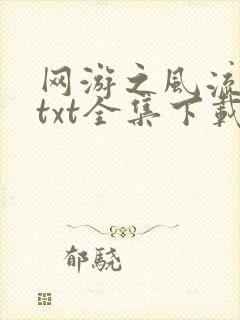 网游之风流
txt全集下载
郁骁